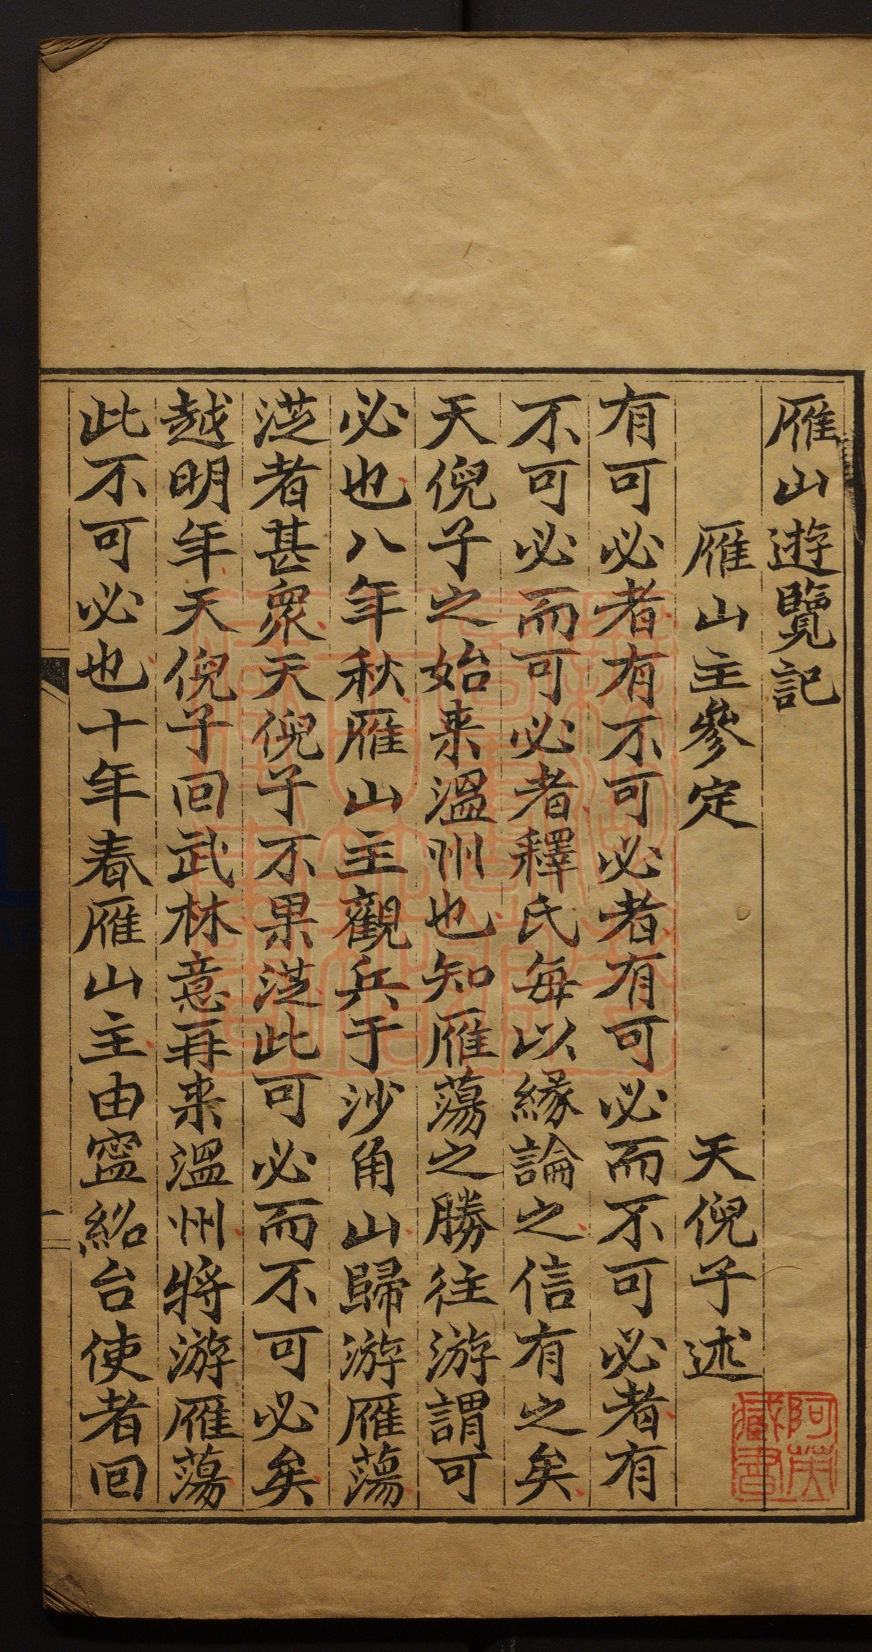 雁山遊覽記
雁山主參定　天倪子述
有可必者有不可必者有可必而不可必者有
不可必而可必者釋氏每以緣論之信有之矣
天倪子之始来溫州也知雁蕩之勝往游謂可
必也八年秋雁山主觀兵于沙角山歸游雁蕩
從者甚衆天倪子不果從此可必而不可必矣
越明年天倪子回武林意再来溫州將游雁蕩
此不可必也十年春雁山主由寧紹台使者回